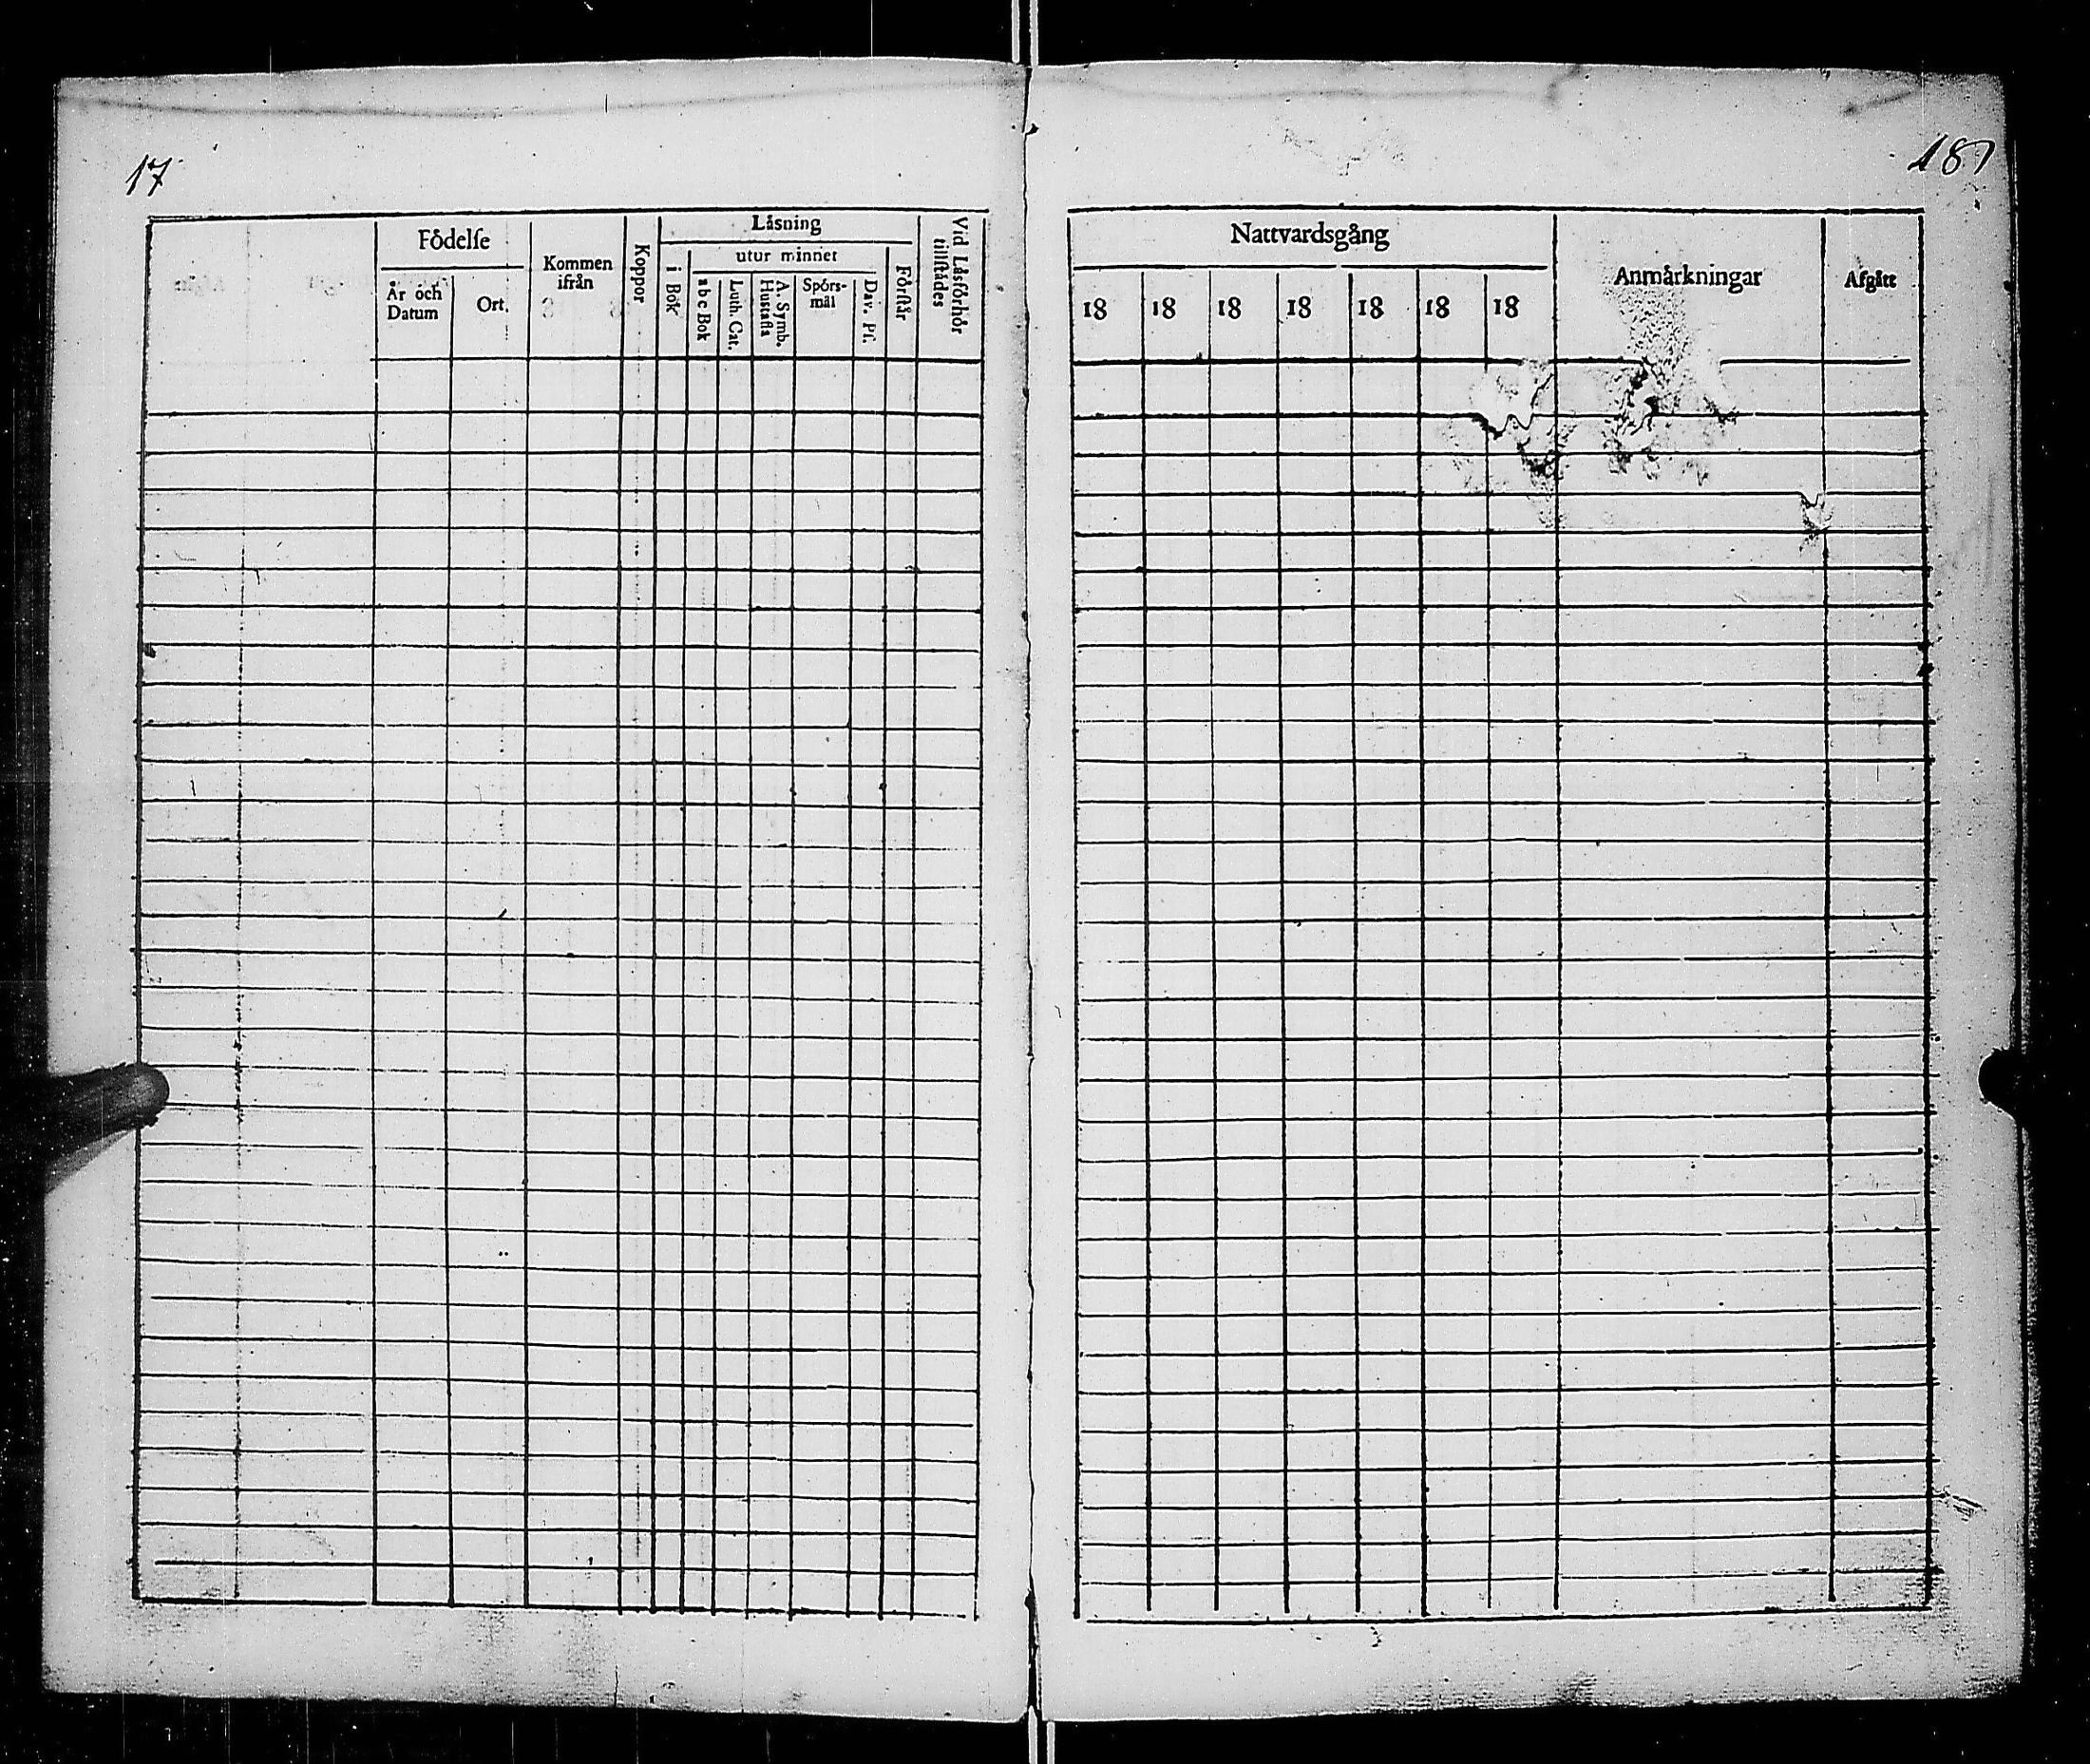 17
Födelſe
År och Datum
Ort.
Kommen ifrån
Koppor
Läsning
i Bok
utur minnet
a b c Bok
Luth. Cat.
A. Symb. Hustafla
Spörs-mål
Dav. Pſ.
Förſtår
Vid Läsförhör tillſtädes
18
Nattvardsgång
18 18 18 18 18 18 18
Anmärkningar
Afgått